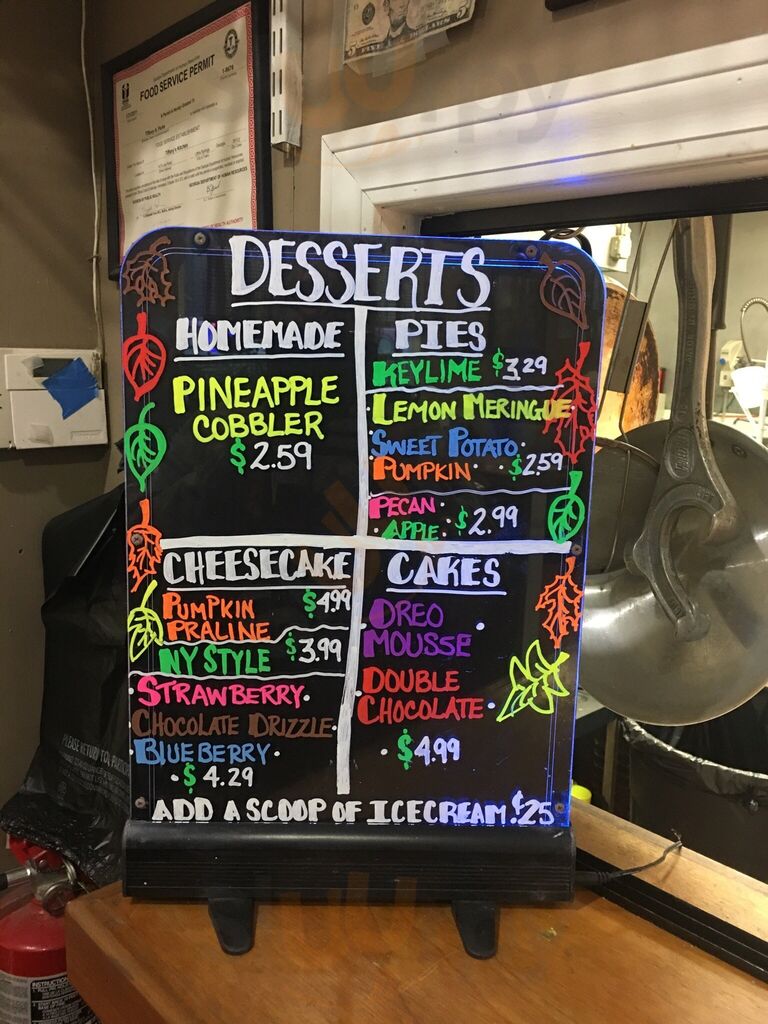 FIVE DOLLARS
FOOD SERVICE PERMIT
DESSERTS
HOMEMADE
PINEAPPLE
COBBLER
$2.59
PIES
KEYLIME $3.29
LEMON MERINGUE
SWEET POTATO
PUMPKIN $2.59
PECAN
APPLE $2.99
CHEESECAKE
PUMPKIN $4.99
PRALINE
NY STYLE $3.99
STRAWBERRY
CHOCOLATE DRIZZLE
BLUEBERRY
$4.29
CAKES
OREO
MOUSSE
DOUBLE
CHOCOLATE
$4.99
ADD A SCOOP OF ICECREAM $.25
INSTRUCTIONS